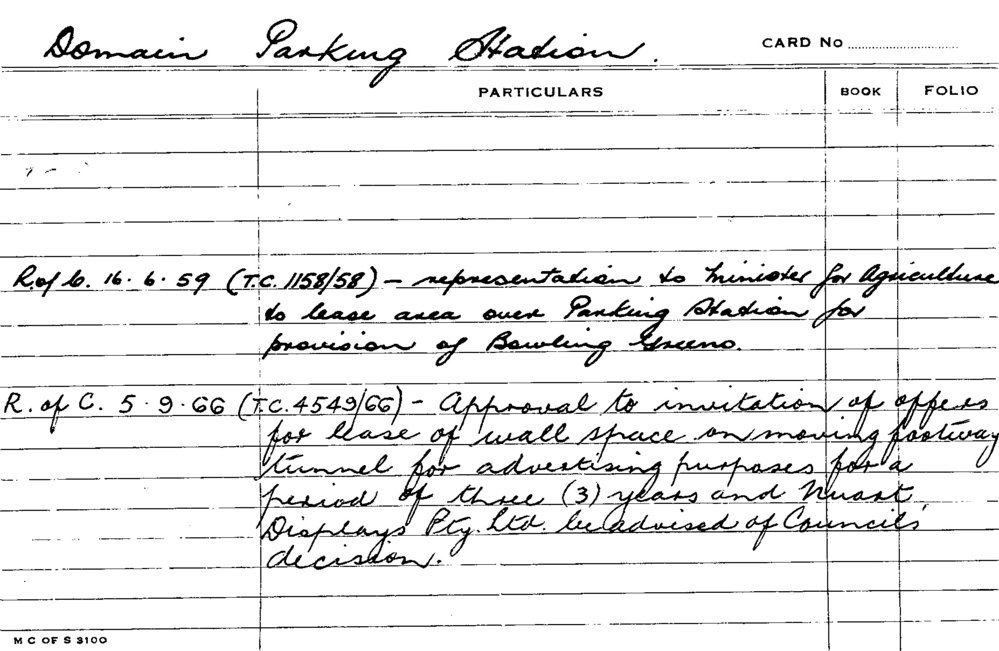 Domain Parking Station.
CARD No
PARTICULARS BOOK FOLIO
R. of C. 16.6.59 (T.C. 1158/58) – representation to Minister for Agriculture
to lease area over Parking Station for
provision of Bowling Greens.
R. of C. 5.9.66 (T.C. 4549/66) – Approval to invitation of offers
for lease of wall space on moving footway
tunnel for advertising purposes for a
period of three (3) years and Nuart
Displays Pty. Ltd. be advised of Council's
decision.
M C OF S 3100